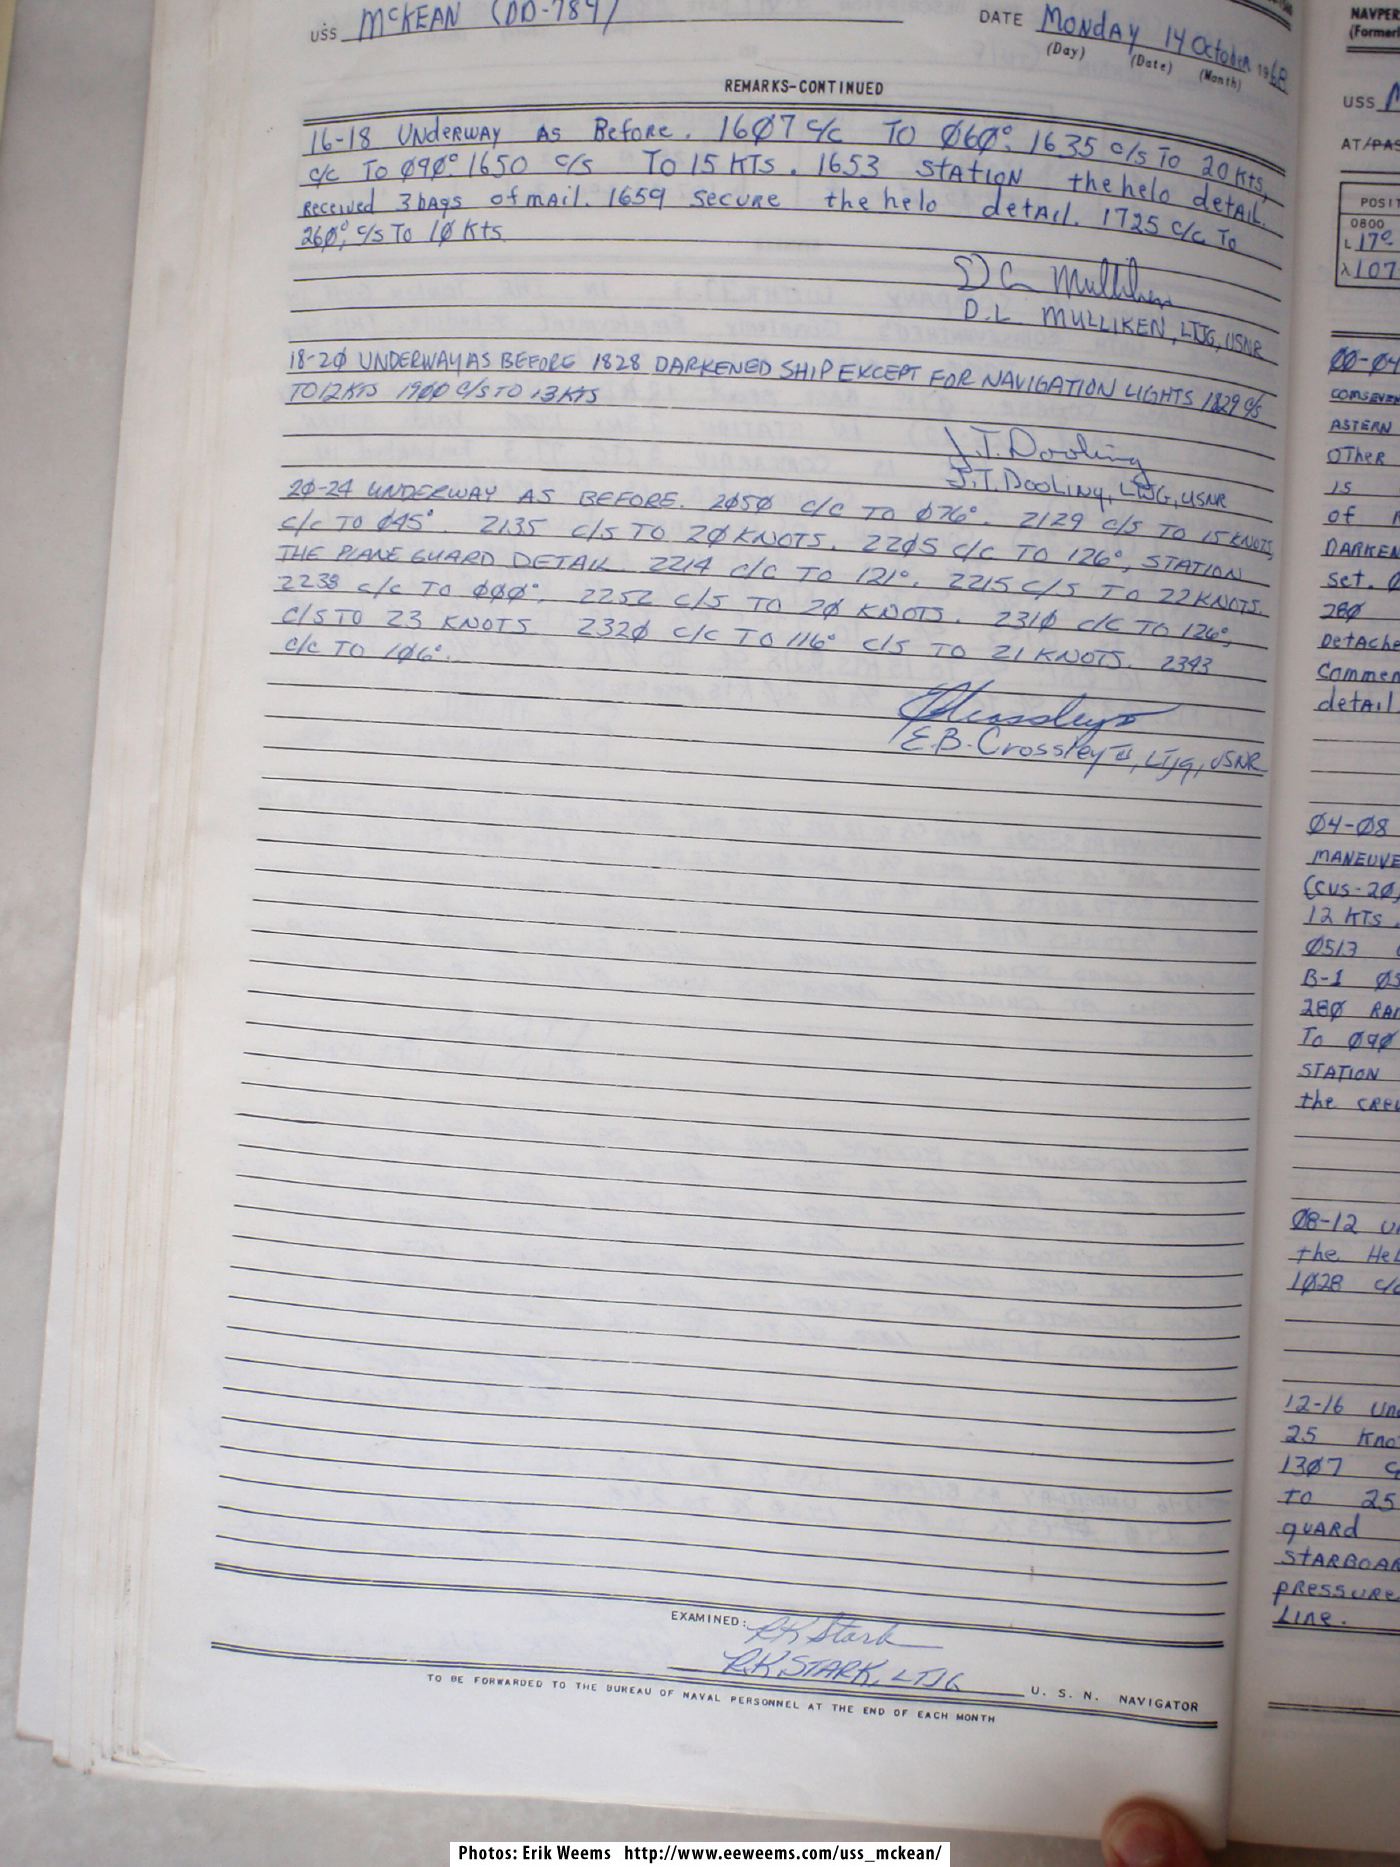 USS McKEAN (DD-784)
DATE Monday 14 October 1968
(Day) (Date) (Month)
REMARKS-CONTINUED
16-18 UNDERWAY AS Before. 16Ø7 c/c TO Ø6Ø°. 1635 c/s TO 20 KTS,
c/c TO Ø9Ø° 1650 c/s TO 15 KTS. 1653 STATION the helo detAIL.
Received 3 bags of mAIL. 1659 secure the helo detAIL. 1725 c/c To
26Ø°, c/s TO 1Ø KTS
D L Mulliken
D.L MULLIKEN, LTJG, USNR
18-2Ø UNDERWAY AS BEFORE 1828 DARKENED SHIP EXCEPT FOR NAVIGATION LIGHTS 1829 c/s
TO 12 KTS 19ØØ c/s TO 13 KTS
J.T. Dooling
J.T. Dooling, LTJG, USNR
2Ø-24 UNDERWAY AS BEFORE. 2Ø5Ø c/c TO Ø76°. 2129 c/s TO 15 KNOTS,
c/c TO Ø45°. 2135 c/s TO 2Ø KNOTS. 22Ø5 c/c TO 126°, STATION
THE PLANE GUARD DETAIL 2214 c/c TO 121°. 2215 c/s TO 22 KNOTS.
2238 c/c TO ØØØ°. 2252 c/s TO 2Ø KNOTS. 231Ø c/c TO 126°,
c/s TO 23 KNOTS 232Ø c/c TO 116° c/s TO 21 KNOTS. 2343
c/c TO 1Ø6°.
E.B. Crossley II, LTJG, USNR
EXAMINED: RK Stark
R.K. STARK, LTJG U. S. N. NAVIGATOR
TO BE FORWARDED TO THE BUREAU OF NAVAL PERSONNEL AT THE END OF EACH MONTH
NAVPER
(Former
USS M
AT/PAS
POSIT
0800
L 17°
λ 107
ØØ-Ø4
COMSEVEN
ASTERN
OTHER
IS
of
DARKEN
set. Ø
28Ø
Detache
Commen
detAIL.
Ø4-Ø8
MANEUVE
(CUS-2Ø,
12 KTS.
Ø513
B-1 Ø5
28Ø RAI
To Ø9Ø
STATION
the CREW
Ø8-12 Un
the HeL
1Ø28 c/c
12-16 Und
25 Kno
13Ø7 c
to 25
guARd
STARBOAR
pressure
Line.
Photos: Erik Weems http://www.eeweems.com/uss_mckean/